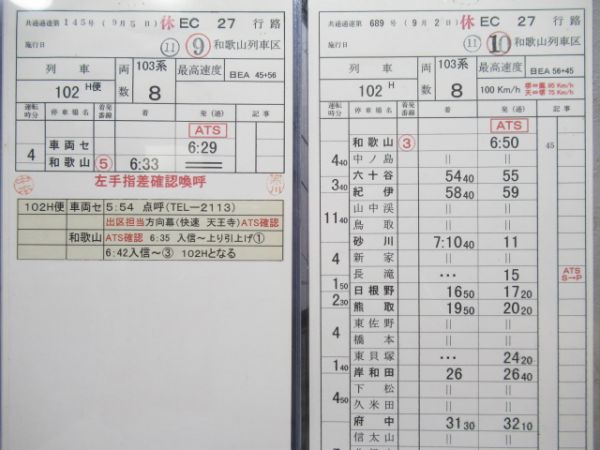 共通過達第145号(9月5日) 休 EC 27 行路
施行日 ⑪ ⑨ 和歌山列車区
列車 両数 103系 最高速度 BEA 45+56
102 H便 8
運転時分 停車場名 着発番線 着 発(通) 記事
ATS
4 車両セ 6:29
和歌山 ⑤ 6:33
左手指差確認喚呼
102H便 車両セ 5:54 点呼(TEL-2113)
出区担当方向幕(快速 天王寺)ATS確認
和歌山 ATS確認 6:35 入信~上り引上げ①
6:42入信~③ 102Hとなる
共通過達第 689号(9月2日) 休 EC 27 行路
施行日 ⑪ ⑩ 和歌山列車区
列車 両数 103系 最高速度 BEA 56+45
102 H 8 100 Km/h 95 Km/h
75 Km/h
運転時分 停車場名 着発番線 着 発(通) 記事
ATS
和歌山 ③ 6:50 45
4 40 中ノ島 || ||
六十谷 54 40 55
3 40 紀伊 58 40 59
11 40 山中渓 || ||
鳥取 || ||
砂川 7:10 40 11
4 新家 || ||
長滝 … 15 ATS S→P
1 50 日根野 16 50 17 20
2 30 熊取 19 50 20 20
4 東佐野 || ||
橋本 || ||
東貝塚 … 24 20
1 40 岸和田 26 26 40
4 50 下松 || ||
久米田 || ||
府中 31 30 32 10
信太山 || ||